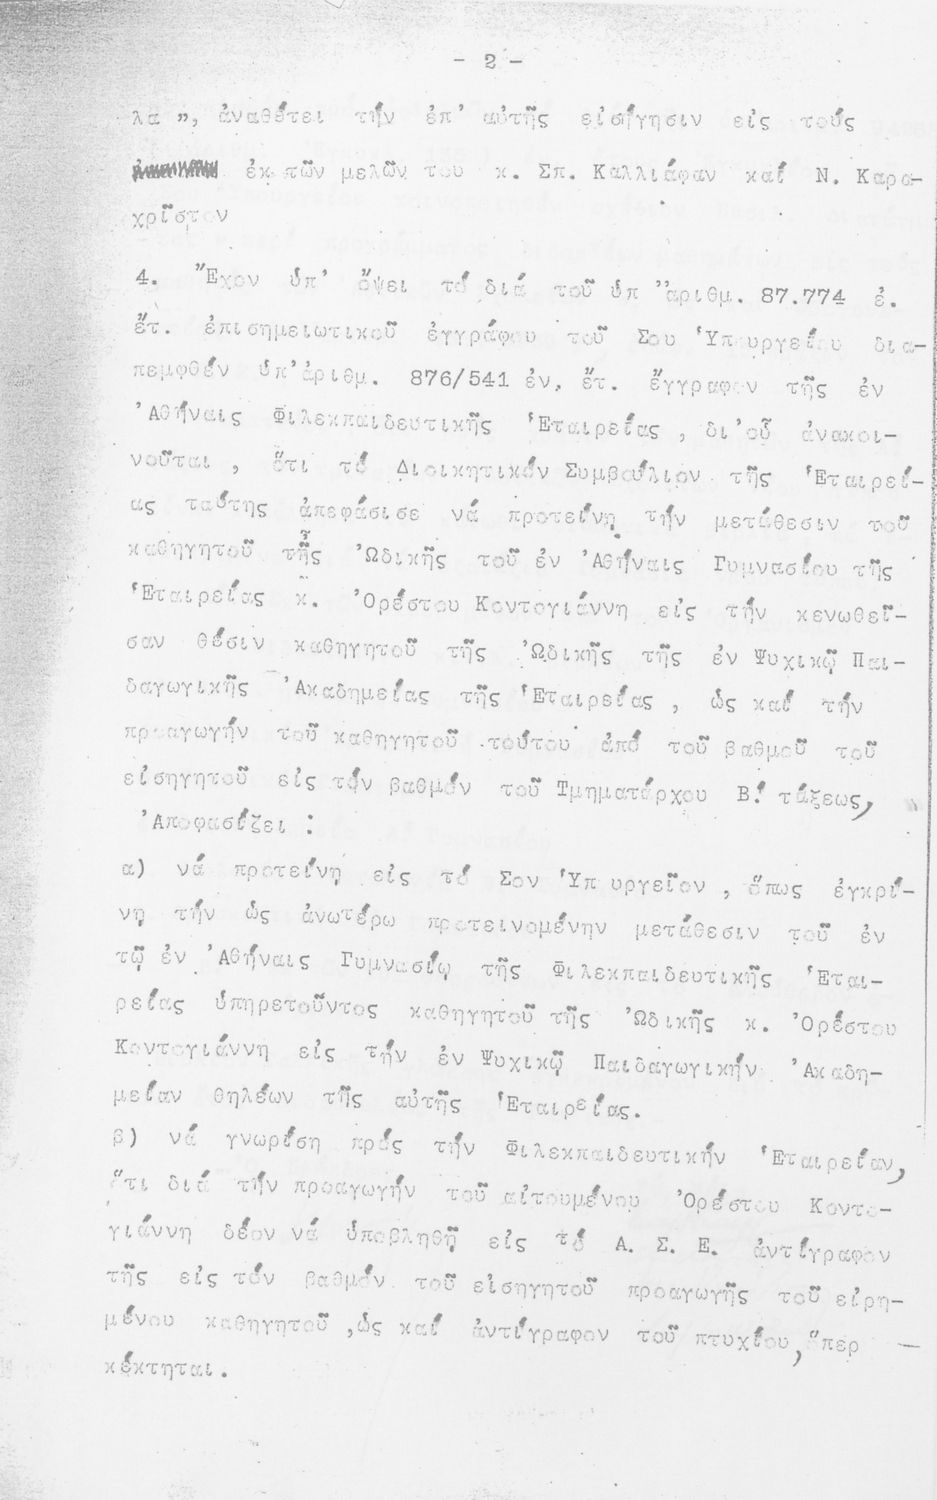 - 2 -
λα ", ἀναθέτει τήν ἐπ' αὐτῆς εἰσήγησιν εἰς τούς
ἐκ τῶν μελῶν του κ. Σπ. Καλλιάφαν καί Ν. Καρα-
χρῖστον
4. Ἔχον ὑπ' ὄψει τό διά τοῦ ὑπ 'ἀριθμ. 87.774 ἐ.
ἔτ. ἐπισημειωτικοῦ ἐγγράφου τοῦ Σου Ὑπουργείου δια-
πεμφθέν ὑπ'ἀριθμ. 876/541 ἐν. ἔτ. ἔγγραφον τῆς ἐν
Ἀθήναις Φιλεκπαιδευτικῆς Ἑταιρείας, δι'οὗ ἀνακοι-
νοῦται, ὅτι τό Διοικητικόν Συμβούλιον τῆς Ἑταιρεί-
ας ταύτης ἀπεφάσισε νά προτείνῃ τήν μετάθεσιν τοῦ
καθηγητοῦ τῆς Ὠδικῆς τοῦ ἐν Ἀθήναις Γυμνασίου τῆς
Ἑταιρείας κ. Ὀρέστου Κοντογιάννη εἰς τήν κενωθεῖ-
σαν θέσιν καθηγητοῦ τῆς Ὠδικῆς τῆς ἐν Ψυχικῷ Παι-
δαγωγικῆς Ἀκαδημείας τῆς Ἑταιρείας, ὡς καί τήν
προαγωγήν τοῦ καθηγητοῦ τούτου ἀπό τοῦ βαθμοῦ τοῦ
εἰσηγητοῦ εἰς τόν βαθμόν τοῦ Τμηματάρχου Β! τάξεως,
Ἀποφασίζει :
α) νά προτείνῃ εἰς τό Σον Ὑπ υργεῖον, ὅπως ἐγκρί-
νῃ τήν ὡς ἀνωτέρω προτεινομένην μετάθεσιν τοῦ ἐν
τῷ ἐν Ἀθήναις Γυμνασίῳ τῆς Φιλεκπαιδευτικῆς Ἑται-
ρείας ὑπηρετοῦντος καθηγητοῦ τῆς Ὠδικῆς κ. Ὀρέστου
Κοντογιάννη εἰς τήν ἐν Ψυχικῷ Παιδαγωγικήν Ἀκαδη-
μείαν θηλέων τῆς αὐτῆς Ἑταιρείας.
β) νά γνωρίσῃ πρός τήν Φιλεκπαιδευτικήν Ἑταιρείαν,
ὅτι διά τήν προαγωγήν τοῦ αἰτουμένου Ὀρέστου Κοντο-
γιάννη δέον νά ὑποβληθῇ εἰς τό Α. Σ. Ε. ἀντίγραφον
τῆς εἰς τόν βαθμόν τοῦ εἰσηγητοῦ προαγωγῆς τοῦ εἰρη-
μένου καθηγητοῦ, ὡς καί ἀντίγραφον τοῦ πτυχίου, ὅπερ
κέκτηται.